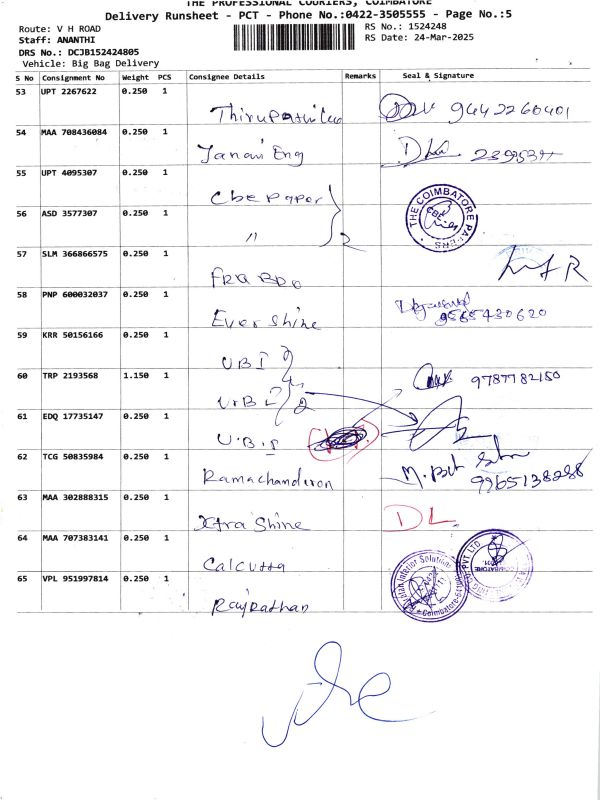 THE PROFESSIONAL COURIERS, COIMBATORE
Delivery Runsheet - PCT - Phone No.:0422-3505555 - Page No.:5
Route: V H ROAD
Staff: ANANTHI
DRS No.: DCJB152424805
Vehicle: Big Bag Delivery
RS No.: 1524248
RS Date: 24-Mar-2025
S No Consignment No Weight PCS Consignee Details Remarks Seal & Signature
53 UPT 2267622 0.250 1
9442260401
54 MAA 708436084 0.250 1
Janani Eng
55 UPT 4095307 0.250 1
Cbe Paper
THE COIMBATORE PAPERS
CBE
56 ASD 3577307 0.250 1
"
2
57 SLM 366866575 0.250 1
58 PNP 600032037 0.250 1
Ever Shine
9565430620
59 KRR 50156166 0.250 1
UBI
60 TRP 2193568 1.150 1
2
9787782150
61 EDQ 17735147 0.250 1
62 TCG 50835984 0.250 1
Ramachandran
9965138288
63 MAA 302888315 0.250 1
Xtra Shine
DL
64 MAA 707383141 0.250 1
Calcutta
PVT LTD
65 VPL 951997814 0.250 1
Interior Solutions
Coimbatore